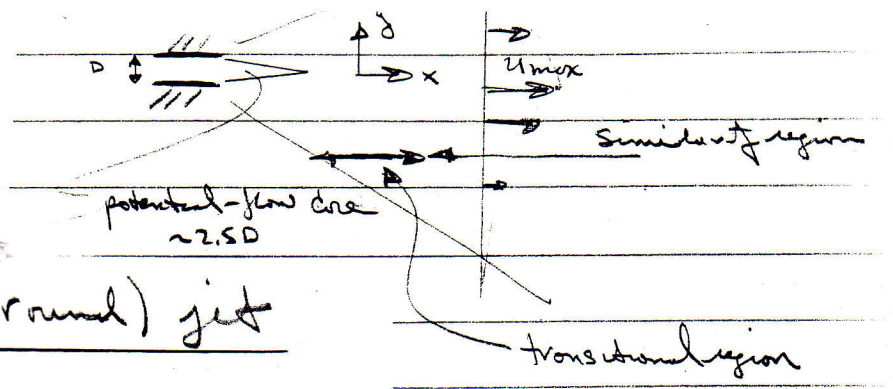 D
y
x
Umax
Similarity region
potential-flow core
~2.5D
round) jet
transitional region